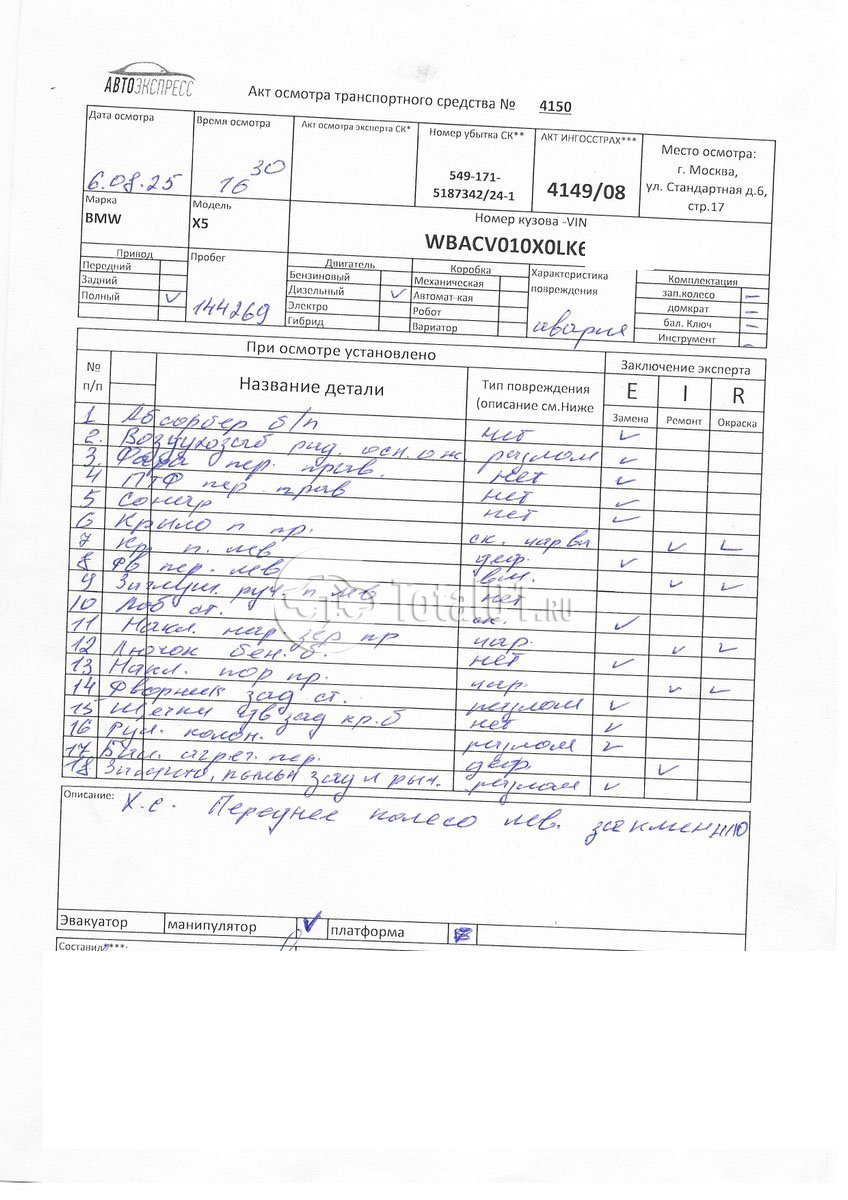 АВТОЭКСПРЕСС
Акт осмотра транспортного средства № 4150
Дата осмотра
6.08.25
Время осмотра
16 30
Акт осмотра эксперта СК*
Номер убытка СК**
549-171-
5187342/24-1
АКТ ИНГОССТРАХ***
4149/08
Место осмотра:
г. Москва,
ул. Стандартная д.6,
стр.17
Марка
BMW
Модель
X5
Номер кузова -VIN
WBACV010X0LK6
Привод
Передний
Задний
Полный ✓
Пробег
144269
Двигатель
Бензиновый
Дизельный ✓
Электро
Гибрид
Коробка
Механическая
Автомат-кая
Робот
Вариатор
Характеристика
повреждения
авария
Комплектация
зап.колесо –
домкрат –
бал. Ключ –
Инструмент –
При осмотре установлено
Заключение эксперта
№
п/п
Название детали
Тип повреждения
(описание см.Ниже
E I R
Замена Ремонт Окраска
1 Абсорбер б/п нет ✓
2. Воздухозаб рад. осн. ож разлом ✓
3. Фара пер. прав. нет ✓
4 ПТФ пер. прав нет ✓
5 Сонар нет ✓
6 Крыло п пр. ск. царап ✓ ✓
7 Кр. п. лев деф. ✓
8 Дв пер. лев вм. ✓ ✓
9 Заглуш. руч. п. лев нет
10 Лоб ст. ск. ✓
11 Накл. нар зер пр цар. ✓ ✓
12 Лючок бен. б. нет ✓
13 Накл. пор пр. цар. ✓ ✓
14 Дворник зад ст. разлом ✓
15 Щетки зад нет ✓
16 Рул. колон. разлом ✓
17 Бал. агрег. пер. деф. ✓
18 Защита, пыльн зад л рыч. разлом ✓
Описание: Х.с. Переднее колесо лев. заклменно
Эвакуатор манипулятор ✓ платформа
Составил****:
Total01.ru